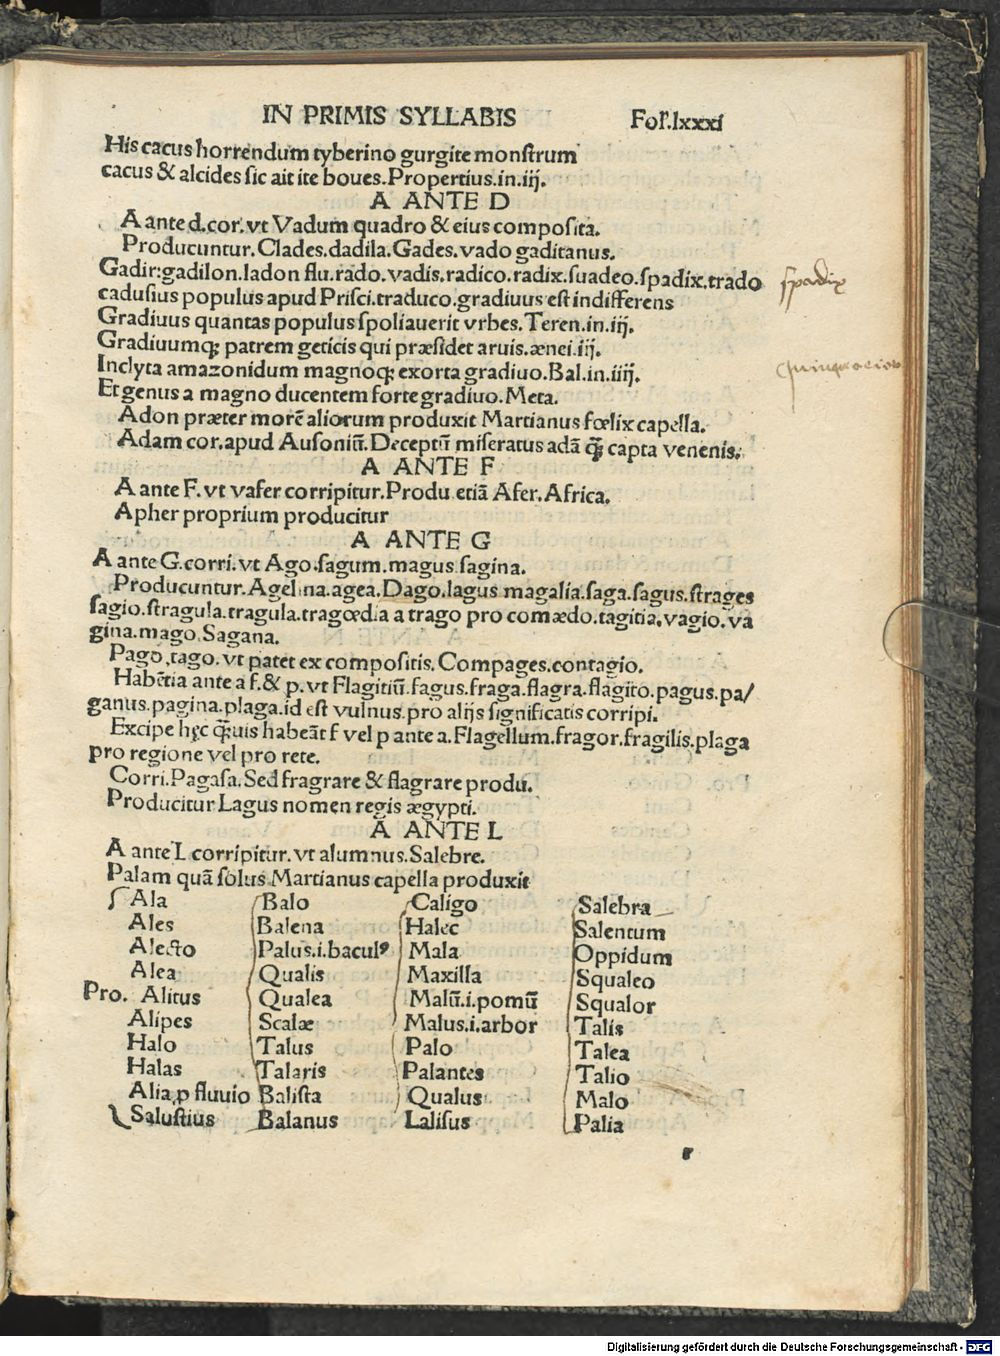 IN PRIMIS SYLLABIS Fol.lxxxi
His cacus horrendum tyberino gurgite monstrum
cacus & alcides sic ait ite boues.Propertius.in.iij.
A ANTE D
A ante.d.cor.vt Vadum quadro & eius composita.
Producuntur.Clades.dadila.Gades.vado gaditanus.
Gadir:gadilon.ladon flu.rado.vadis.radico.radix.suadeo.spadix.trado
spadix
cadusius populus apud Prisci.traduco.gradiuus est indifferens
Gradiuus quantas populus spoliauerit vrbes.Teren.in.iij.
Gradiuumq; patrem geticis qui præsidet aruis.ænei.iij.
Inclyta amazonidum magnoq; exorta gradiuo.Bal.in.iiij.
Et genus a magno ducentem forte gradiuo.Meta.
Adon præter morē aliorum produxit Martianus fœlix capella.
Adam cor.apud Ausoniū.Deceptū miseratus adā q̄; capta venenis.
A ANTE F
A ante F.vt vafer corripitur.Produ.etiā Afer.Africa.
Apher proprium producitur
A ANTE G
A ante G.corri.vt Ago.sagum.magus sagina.
Producuntur.Agelina.agea.Dago.lagus magalia.saga.sagus.strages
sagio.stragula.tragula.tragœdia a trago pro comædo.tagitia.vagio.va
gina.mago.Sagana.
Pago.tago.vt patet ex compositis.Compages.contagio.
Habētia ante a f.& p.vt Flagitiū.fagus.fraga.flagra.flagito.pagus.pa/
ganus.pagina.plaga.id est vulnus.pro alijs significatis corripi.
Excipe hęc q̄uis habeāt f vel p ante a.Flagellum.fragor.fragilis.plaga
pro regione vel pro rete.
Corri.Pagasa.Sed fragrare & flagrare produ.
Producitur Lagus nomen regis ægypti.
A ANTE L
A ante L corripitur.vt alumnus.Salebre.
Palam quā solus Martianus capella produxit
Ala Balo Caligo Salebra
Ales Balena Halec Salentum
Alecto Palus.i.baculꝰ Mala Oppidum
Alea Qualis Maxilla Squaleo
Pro. Alitus Qualea Malū.i.pomū Squalor
Alipes Scalæ Malus.i.arbor Talis
Halo Talus Palo Talea
Halas Talaris Palantes Talio
Alia,ꝓ fluuio Balista Qualus Malo
Salustius Balanus Lalisus Palia
r
Digitalisierung gefördert durch die Deutsche Forschungsgemeinschaft - DFG